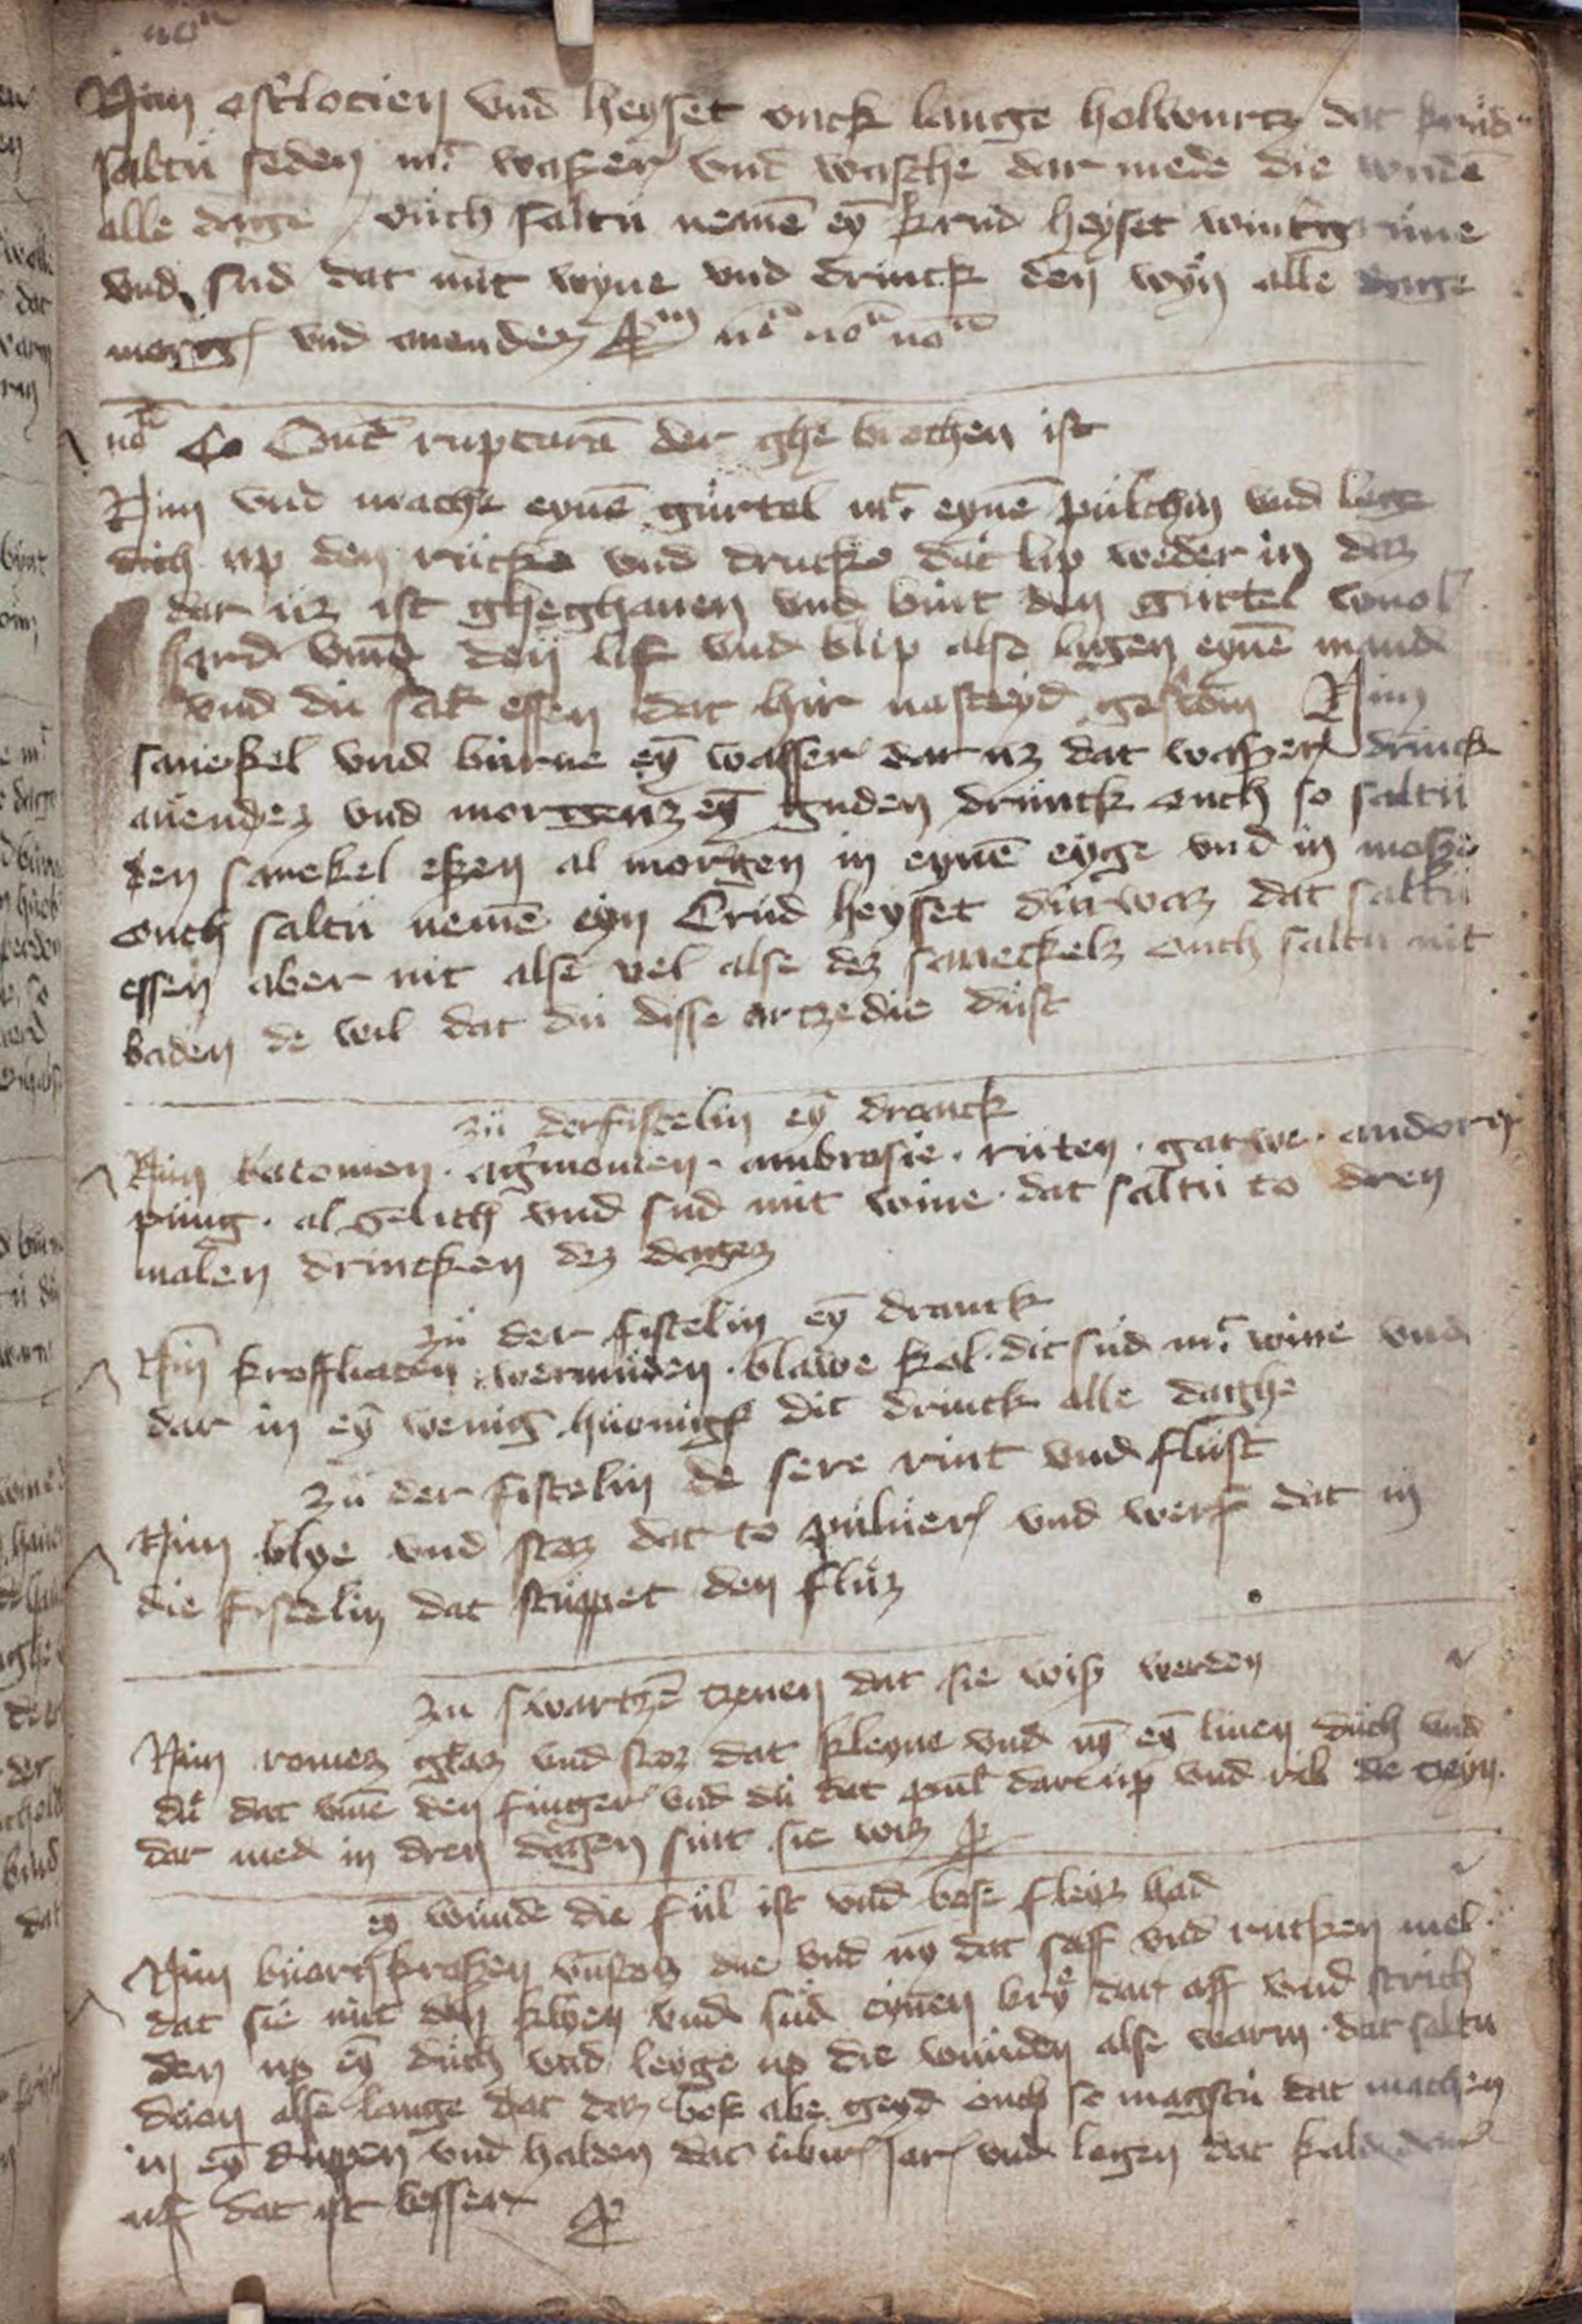 nota
Nim ostlocien vnd heyset ouck lange holwurtz dat krud
saltu seden mit waßer vnd wasche dar mede die wnde
alle dage / ouch saltu neme ey krud heyset wintgrune
vnd sud dat mit wyne vnd drinck den wyn alle dage
morgen vnd auendez nota nota nota
nota Co Cont rupturam der ghe brochen ist
Nim vnd mache eyne gurtel mit eyne pulchin vnd lege
dich up den rucke vnd drucke dat lip weder in daz
dar uz ist gheghauen vnd bint den gurtel wuol
hard vmme den lif vnd blip also ligen eyne mand
vnd du salt essen dat hir nasteyd gescrom Nim
sanekel vnd burne ey wasser dar uz dat waßer drinck
auendez vnd morgenz ey guden drunck ouch so saltu
den sanekel eßen al morgen in eyne eyge vnd in moße
ouch saltu neme eyn Crud heyset durwaz dat saltu
essen aber nit alse vel alse dez saneckelz ouch saltu nit
baden de wil dat du disse artzedie dust
zu der fistelin ey dranck
Nim batomen · agrmonien · ambrosie · ruten · garwe · andorn
pung · al gelich vnd sud mit wine · dat saltu to dren
malen drincken dez dagez
zu der fistelin ey dranck
Nim krofflaten · wermuden · blawe kol · dit sud mit wine vnd
dar in ey wenig huonigk dit drinck alle daghe
zu der fistelin de sere rint vnd flust
Nim blye vnd stoz dat to puluer vnd werf dat in
die fistelin dat stuppet den fluz
zu swartze tzenen dat sie wiß werden
Nim romez glaz vnd stoz dat kleyne vnd ny ey linen duch vnd
du dat vme den finger vnd du dat pul dar up vnd rib de tzeyn
dar med in dren dagen sint sie wiz
ey wunde die ful ist vnd bose fleyz had
Nim buorn kraßen vnstoz die vnd ny dat saff vnd rucken mel
dat sie mit den klyen vnd sud eynen bry dar aff vnd strich
den up ey duch vnd leyge up die wunden alse warm · dat saltu
duon alse lange dat daz bose abe geyd ouch so magstu dat machen
in ey duppen vnd halden dat ubir jar vnd legen dat kald
uff dat ist besser